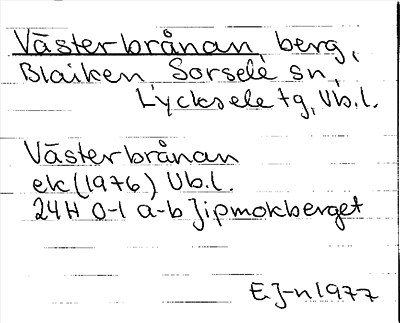 Västerbrånan, berg,
Blaiken Sorsele sn,
Lycksele tg, Vb.l.
Västerbrånan
ek (1976) Vb.l.
24H 0-1 a-b Jipmokberget
EJ-n 1977